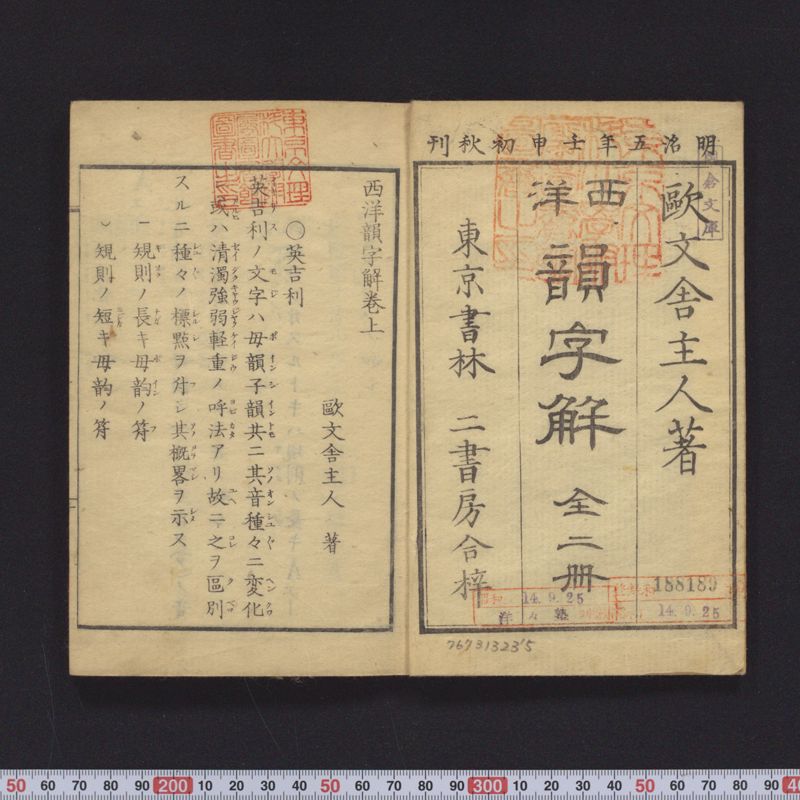 明治五年壬申初秋刊
歐文舎主人著
西洋
韻字解 全二冊
東京書林 二書房合梓
188189
14.9.25
14.9.25
洋々塾
767313235
西洋韻字解巻上
歐文舎主人 著
〇英吉利
英吉利ノ文字ハ母韻子韻共ニ其音種々ニ変化
或ハ清濁強弱軽重ノ呼法アリ故ニ之ヲ區別
スルニ種々ノ標㸃ヲ付シ其概畧ヲ示ス
規則ノ長キ母韵ノ符
規則ノ短キ母韵ノ符
50 60 70 80 90 200 10 20 30 40 50 60 70 80 90 300 10 20 30 40 50 60 70 80 90